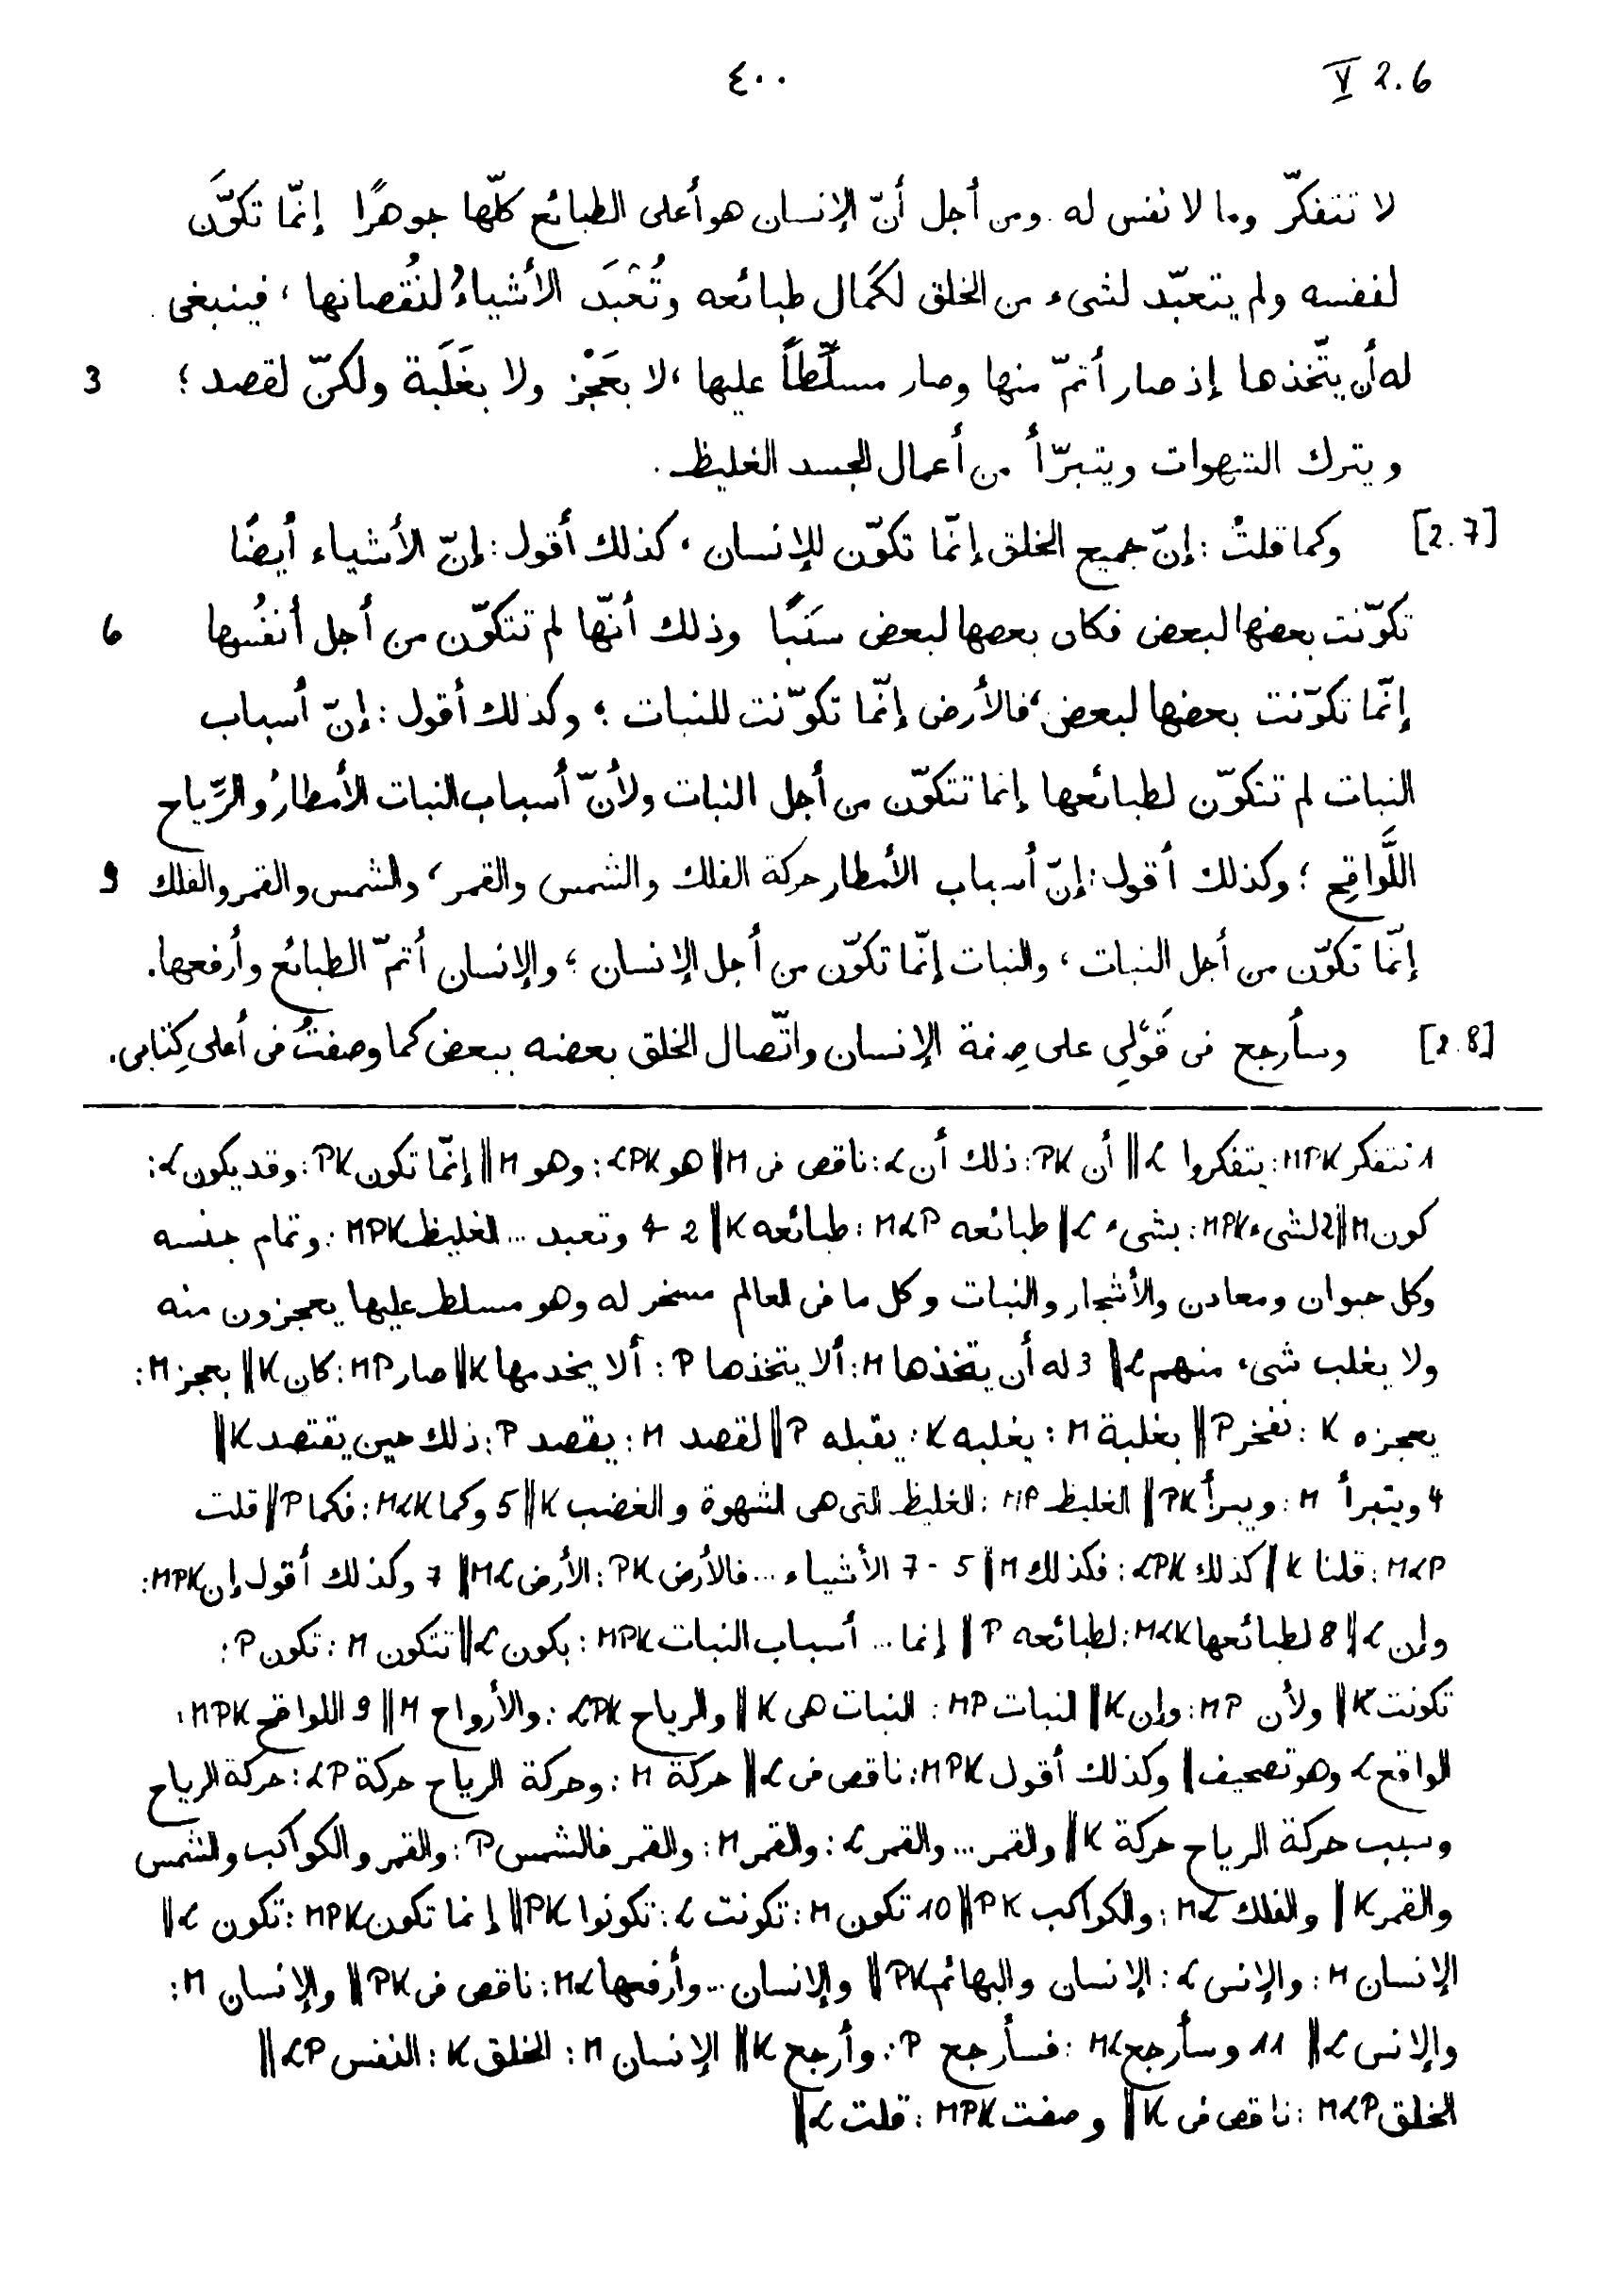 ٤٠٠ V 2.6
لا تتفكّر وما لا نفس له. ومن أجل أنّ الإنسان هو أعلى الطبائع كلّها جوهرًا إنّما تكوّنَ
لنفسه ولم يتعبّد لشىء من الخلق لكَمال طبائعه وتُعْبَدَ الأشياءُ لنُقصانها، فينبغى
له أن يتّخذها إذ صار أتمّ منها وصار مسلَّطاً عليها، لا بعَجْز ولا بغَلَبة ولكنّ لقصد؛ 3
ويترك الشهوات ويتبرّأ من أعمال الجسد الغليظ.
[2.7] وكما قلتُ: إنّ جميع الخلق إنّما تكوّن للإنسان، كذلك أقول: إنّ الأشياء أيضًا
تكوّنت بعضها لبعض فكان بعضها لبعض سَبَبًا وذلك أنّها لم تتكوّن من أجل أنفُسها 6
إنّما تكوّنت بعضها لبعض، فالأرض إنّما تكوّنت للنبات؛ وكذلك أقول: إنّ أسباب
النبات لم تتكوّن لطبائعها إنما تتكوّن من أجل النبات ولأنّ أسباب النبات الأمطارُ والرِّياح
اللَّواقِح؛ وكذلك أقول: إنّ أسباب الأمطار حركة الفلك والشمس والقمر، والشمس والقمر والفلك 9
إنّما تكوّن من أجل النبات، والنبات إنّما تكوّن من أجل الإنسان؛ والإنسان أتمّ الطبائع وأرفعها.
[2.8] وسأرجع فى قَوْلِى على صِفة الإنسان واتّصال الخلق بعضه ببعض كما وصفتُ فى أعلى كِتابى.
1 تتفكر MPK: يتفكروا L || أن PK: ذلك أن L: ناقص فى M || هو LPK: وهو M || إنّما تكون PK: وقد يكون L:
كون M || 2 لشىء MPK: بشىء L || طبائعه MLP: طبائعه K || 2 4 وتعبد ... الغليظ MPK: وتمام جنسه
وكل حيوان ومعادن والأشجار والنبات وكل ما فى العالم مسخر له وهو مسلط عليها يعجزون منه
ولا يغلب شىء منهم L || 3 له أن يتخذها M: ألا يتخذها P: ألا يخدمها K || صار MP: كان K || بعجز M:
يعجزه K: نفخر P || بغلبة M: يغلبه K: يقبله P || لقصد M: يقصد P: ذلك حين يقتصد K ||
4 ويتبرأ M: ويبرأ PK || الغليظ MP: الغليظ التى هى الشهوة والغضب K || 5 وكما MLK: فكما P || قلت
MLP: قلنا K || كذلك LPK: فكذلك M || 5 - 7 الأشياء ... فالأرض PK: الأرض ML || 7 وكذلك أقول إن MPK:
وإن L || 8 لطبائعها MLK: لطبائعه P || إنما ... أسباب النبات MPK: يكون L || تتكون M: تكون P:
تكونت K || ولأن MP: وإن K || النبات MP: النبات هى K || والرياح LPK: والأرواح M || 9 اللواقح MPK:
الواقع L وهو تصحيف || وكذلك أقول MPK: ناقص فى L || حركة M: وحركة الرياح حركة LP: حركة الرياح
وسبب حركة الرياح حركة K || والقمر ... والقمر L: والقمر M: والقمر فالشمس P: والقمر والكواكب والشمس
والقمر K || والفلك ML: والكواكب PK || 10 تكون M: تكونت L: تكونوا PK || إنما تكون MPK: تكون L ||
الإنسان M: والإنس L: الإنسان والبهائم PK || والإنسان ... وأرفعها ML: ناقص فى PK || والإنسان M:
والإنس L || 11 وسأرجع ML: فسأرجع P: وأرجع K || الإنسان M: الخلق K: النفس LP ||
الخلق MLP: ناقص فى K || وصفت MPK: قلت L ||